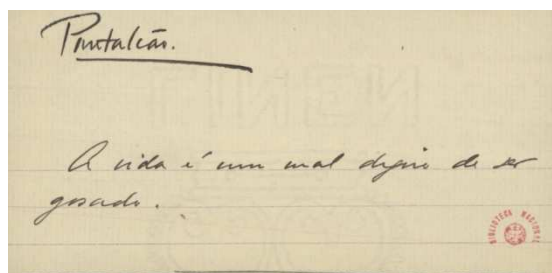 Pantaleão.
A vida é um mal digno de ser
gosado.
BIBLIOTECA NACIONAL